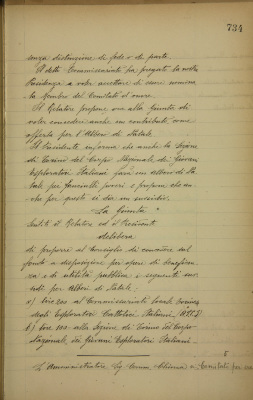 734
senza distinzione di fede o di parte.
Il detto Commissariato ha pregato la nostra
Presidenza a voler accettare di essere nominata
Membro del Comitato d'onore.
Il Relatore propone ora alla Giunta di
voler concedere anche un contributo come
offerta per l'Albero di Natale.
Il Presidente informa che anche la Sezione
di Torino del Corpo Nazionale dei Giovani
Esploratori Italiani farà un albero di Na-
tale per fanciulli poveri e propone che an-
che per questi si dia un sussidio.
"La Giunta"
Sentito il Relatore ed il Presidente
delibera
di proporre al Consiglio di
fondo a disposizione per spese di beneficen-
za e di utilità pubblica i seguenti sus-
sidi per Alberi di Natale:
a) Lire 200 al Commissariato Locale Torinese
degli Esploratori Cattolici Italiani
b) Lire 100 alla Sezione di Torino del Corpo
Nazionale dei Giovani Esploratori Italiani.
L'Amministratore Sig. Comm.